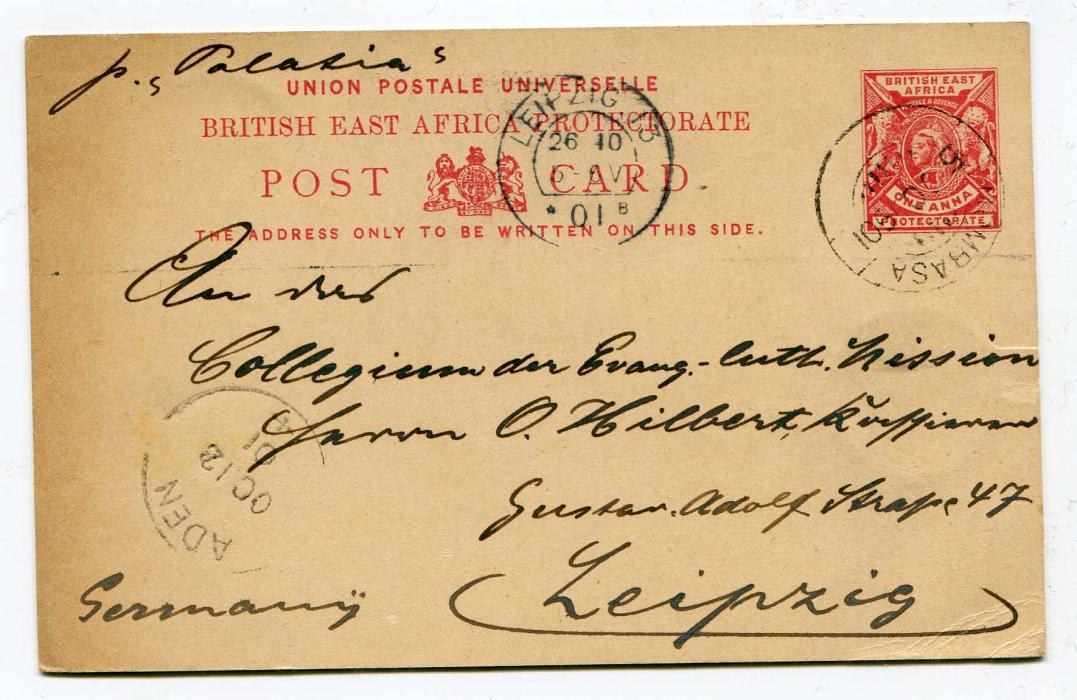 p. „Palatia"
UNION POSTALE UNIVERSELLE
BRITISH EAST AFRICA PROTECTORATE
POST CARD
THE ADDRESS ONLY TO BE WRITTEN ON THIS SIDE.
BRITISH EAST
AFRICA
POSTAGE & REVENUE
ONE ANNA
PROTECTORATE
LEIPZIG 13
26 10
01 B
MOMBASA
ADEN
OC 12
01
An das
Collegium der Evang.-luth. Mission
Herrn O. Hilbert, Kassierer
Gustav-Adolf Straße 47
Leipzig
Germany